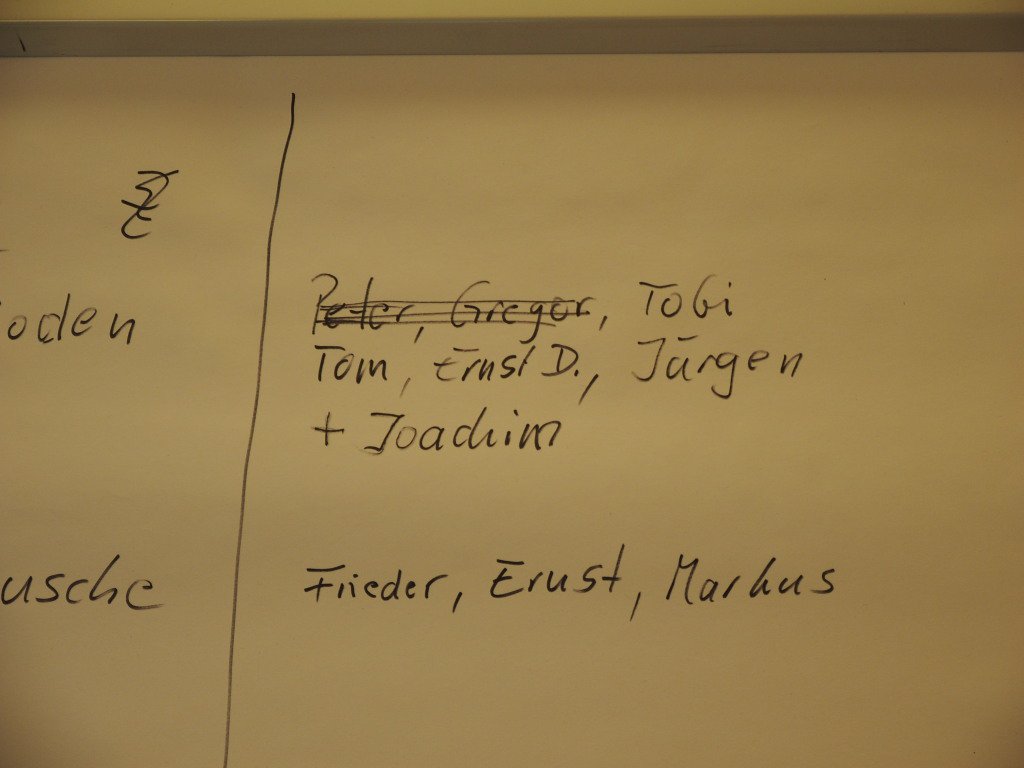 oden
Peter, Gregor, Tobi
Tom, Ernst D., Jürgen
+ Joachim
usche Frieder, Ernst, Markus